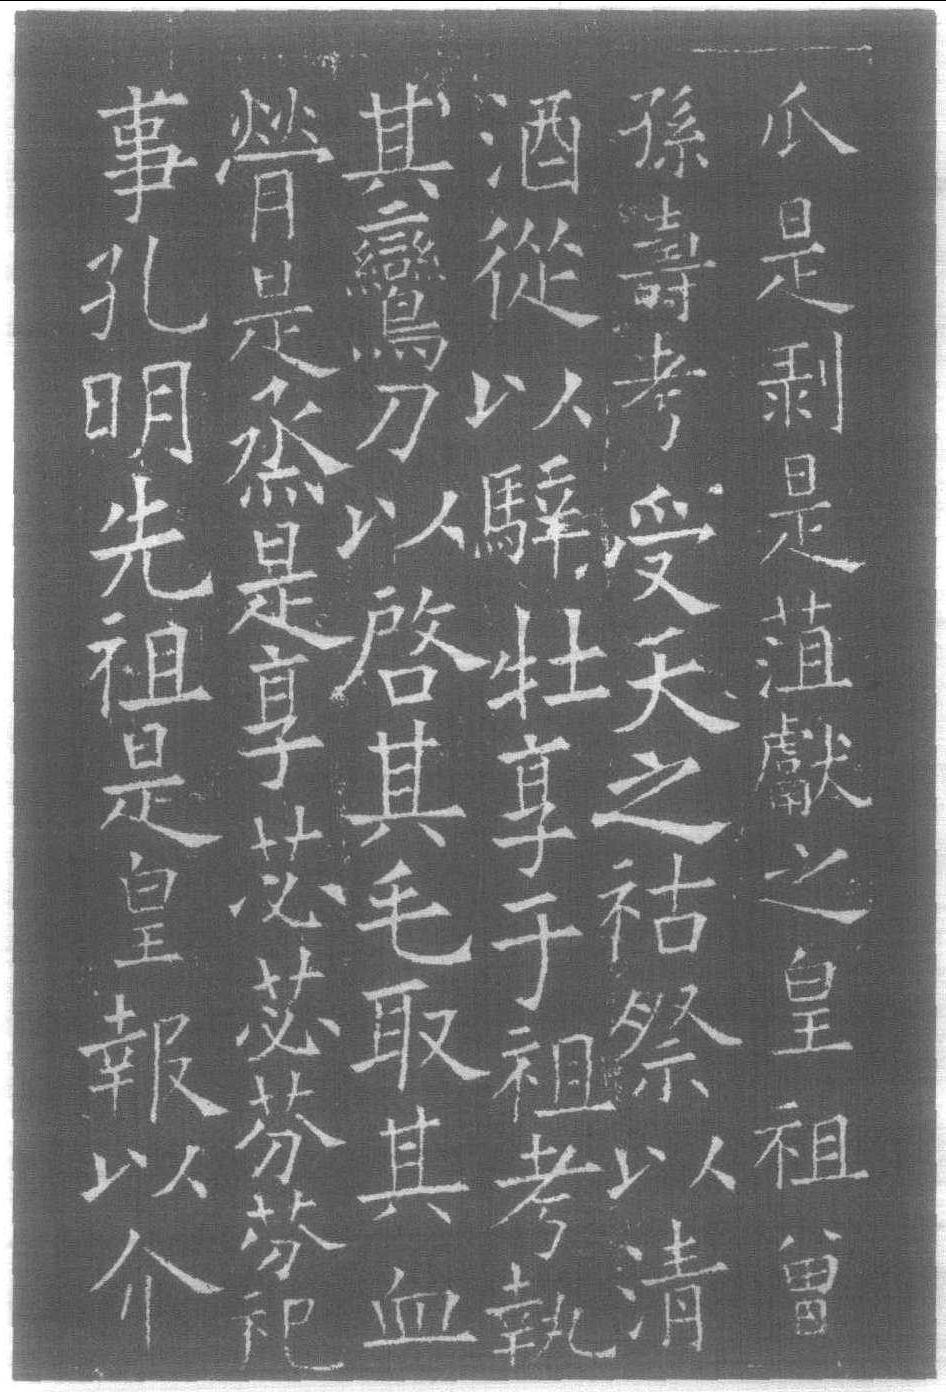 瓜是剥是菹獻之皇祖曾
孫壽考受天之祜祭以清
酒從以騂牡享于祖考執
其鸞刀以啓其毛取其血
膋是烝是享苾苾芬芬祀
事孔明先祖是皇報以介